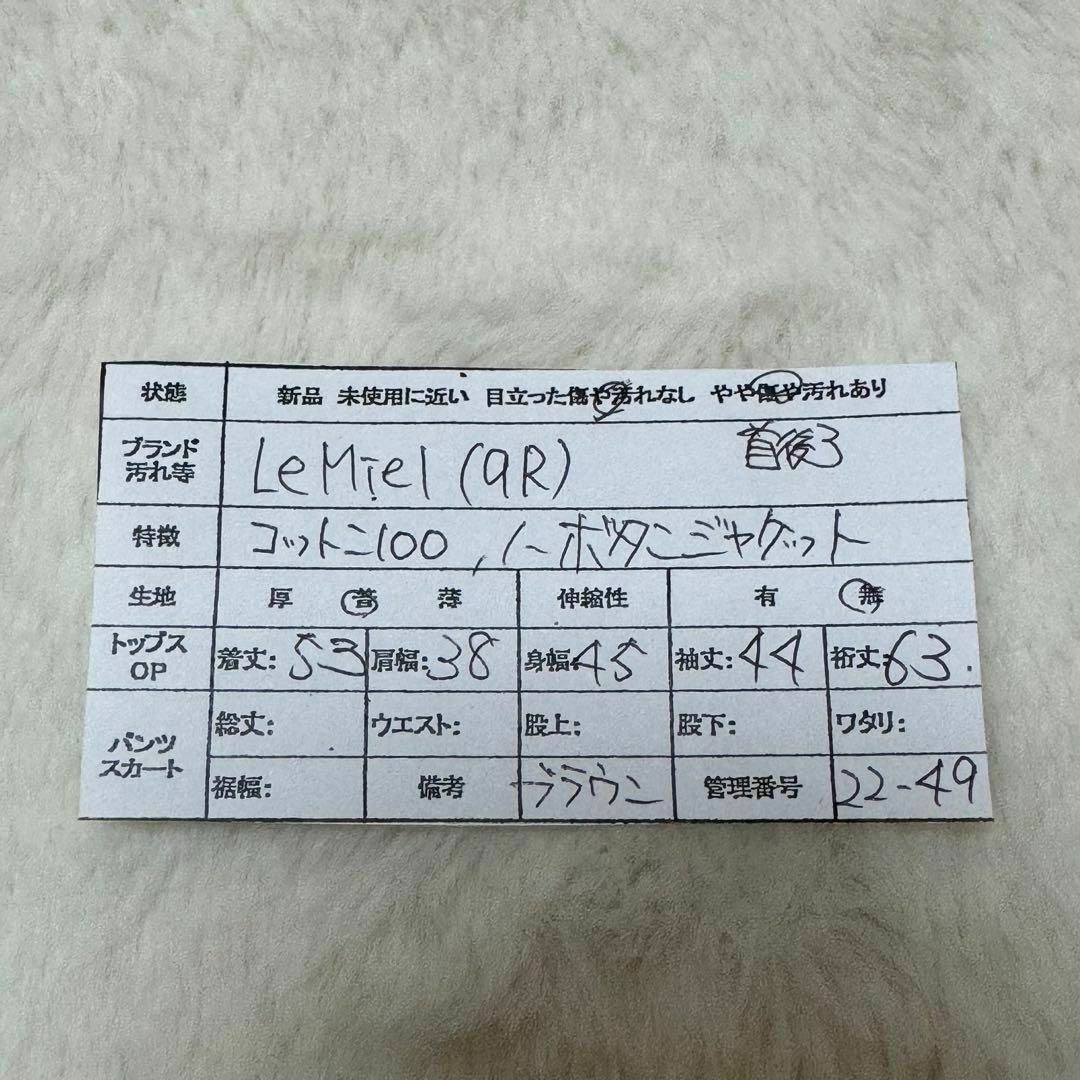 状態 新品 未使用に近い 目立った傷や汚れなし やや傷や汚れあり
ブランド
汚れ等 Le Miel (9R) 首後3
特徴 コットン100, ノーボタンジャケット
生地 厚 普 薄 伸縮性 有 無
トップス
OP 着丈: 53 肩幅: 38 身幅: 45 袖丈: 44 裄丈: 63.
パンツ
スカート 総丈: ウエスト: 股上: 股下: ワタリ:
裾幅: 備考 ブラウン 管理番号 22-49